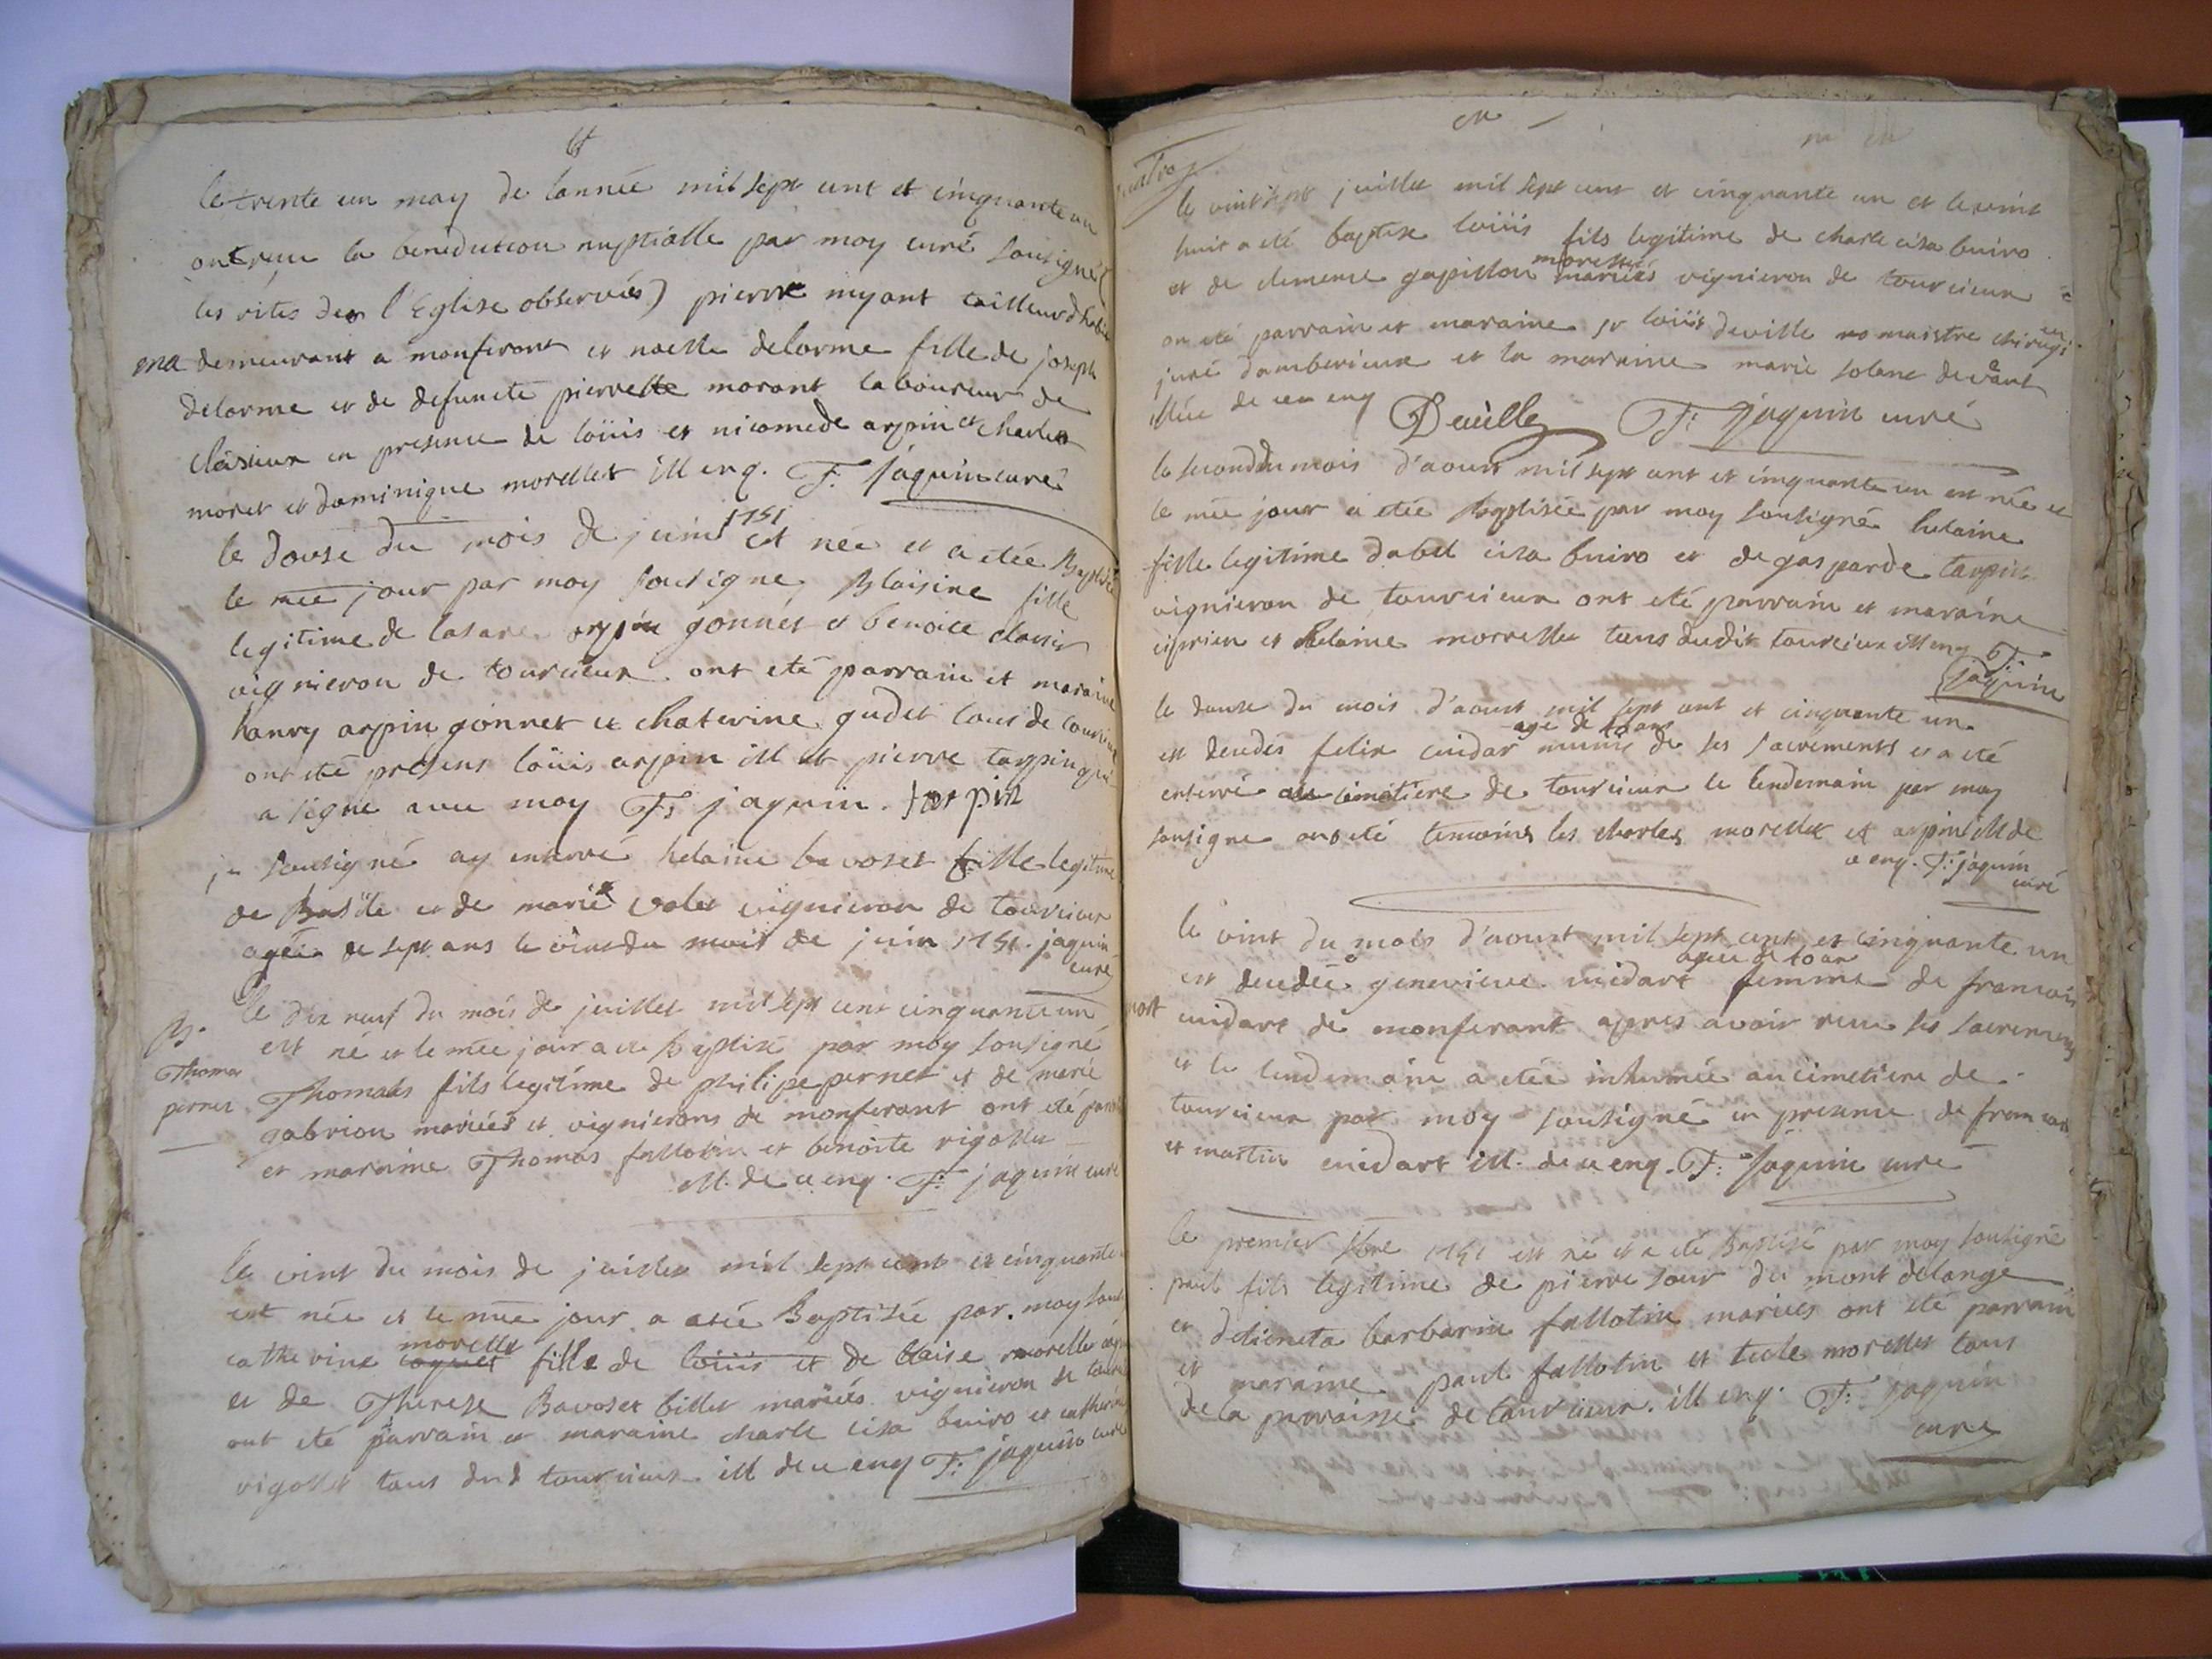 le trente un may de l'année mil sept cent et cinquante un
ont reçu la benediction nuptialle par moy curé sousigné (
les rites de l'Eglise observées) pierre niyant tailleur d'habit
ma demeurant a monferant et noelle delorme fille de joseph
delorme et de defuncte pierrette morant laboureur de
cleisieux en presence de loüis et nicomede arpin et charles
moret et dominique morellet ill enq. F. jaquin curé
le douse du mois de juin 1751 est née et a etée Baptisée
le mee jour par moy sousigne, Blaisine fille
legitime de lasare arpin gonnet et benoite claisir
vignieron de tourcieux ont eté parrain et maraine
hanry arpin gonnet et chaterine gudet tous de
ont eté presens loüis arpin ill et pierre tarpin qui
a signé avec moy F: jaquin. tarpin
je sousigné ay enterré helaine bavoset fille legitime
de Basile et de marie valet vignieron de tourcieux
agée de sept ans le du mois de juin 1751. jaquin
curé
B.
Thomas
pernet
le dix neuf du mois de juillet mil sept cent cinquante un
est né et le mee jour a ete baptisé par moy sousigné
Thomas fils legitime de philipe pernet et de marie
gabrion mariées et vignierons de monferant ont eté
et maraine Thomas fallotin et benoite rigollet
ill. de ce enq. F: jaquin curé
le vint du mois de juillet mil sept cent et cinquante
est née et le mee jour a etée Baptisée par moy
morellet
catherine coquet fille de loüis et de blaise morellet
et de Therese Bavoset billet mariées vignieron de
ont eté parrain et maraine charle cisa buiro et catherine
rigollet tous dud tourcieux ill de ce enq F: jaquin curé
le vint sept juillet mil sept cent et cinquante un et le vint
huit a eté baptise loüis fils legitime de charle cisa buiro
morellet
et de clemence gapillon mariées vignieron de tourcieux
on eté parrain et maraine sr loüis deville maistre chirugi en
juré d'amberieux et la maraine marie
illée de ce enq Deville F: jaquin curé
le second du mois d'aoust mil sept cent et cinquante un est née et
le mee jour a etée Baptisée par moy sousigné helaine
fille legitime d'abel cisa buiro et de gasparde tarpin
vignieron de tourcieux ont eté parrain et maraine
ciprien et helaine morrellet tous dudit tourcieux ill enq F:
jaquin
le douse du mois d'aoust mil sept cent et cinquante un
agé de 40 ans
est decedés felix cuidar munie de ses sacrements et a eté
enterré au cimetiere de tourcieux le lendemain par moy
sousigne on eté temoins les charles morellet et arpin ill de
ce enq. F: jaquin
curé
le vint du mois d'aoust mil sept cent et cinquante un
agée de 40 an
est decedée genevieve cuidart femme de francois
mort cuidart de monferant apres avoir receu ses sacremens
et le lendemain a etée inhumée au cimetiere de
tourcieux par moy sousigné en presence de francois
et martin cuidart ill. de ce enq. F: jaquin curé
le premier 1751 est né et a eté Baptisé par moy sousigné
paul fils legitime de pierre sour du mont delange
et barbarin fallotin mariées ont eté parrain
et maraine paul fallotin et tecle morellet tous
de la parroisse de tourcieux. ill enq. F: jaquin
curé